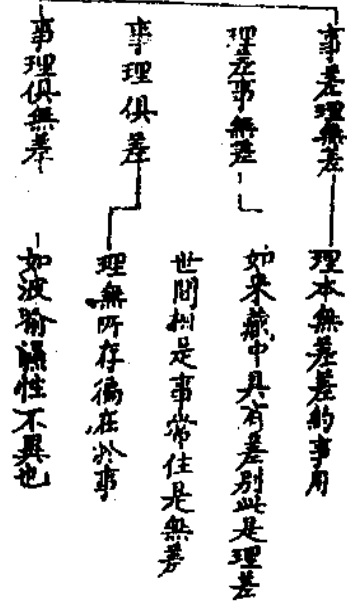 事差理無差
理本無差差約事用
理差事無差
如來藏中具有差別此是理差
世間相是事常住是無差
事理俱差
理無所存徧在於事
事理俱無差
如波喻濕性不異也